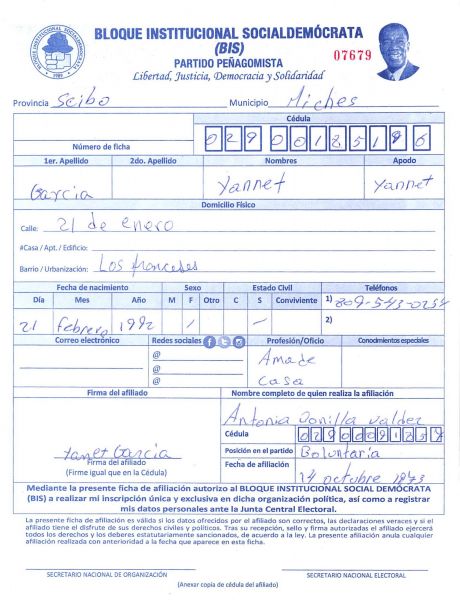 BLOQUE INSTITUCIONAL SOCIALDEMÓCRATA
(BIS)
BLOQUE INSTITUCIONAL SOCIALDEMOCRATA
PARTIDO PEÑAGOMISTA
07679
Libertad, Justicia, Democracia y Solidaridad
Provincia Seibo Municipio Miches
Cédula
Número de ficha 029 0018519 6
1er. Apellido 2do. Apellido Nombres Apodo
Garcia Yannet Yannet
Domicilio Físico
Calle: 21 de enero
#Casa / Apt. / Edificio:
Barrio / Urbanización: Los franceses
Fecha de nacimiento Sexo Estado Civil Teléfonos
Día Mes Año M F Otro C S Conviviente 1) 809-543-0254
21 febrero 1992 / / 2)
Correo electrónico Redes sociales Profesión/Oficio Conocimientos especiales
@ Ama de
@ casa
@
Firma del afiliado Nombre completo de quien realiza la afiliación
Antonia Bonilla Valdez
Cédula
029 0009185
Yanet Garcia
Posición en el partido Boluntaria
Firma del afiliado
(Firme igual que en la Cédula)
Fecha de afiliación
14 octubre 1873
Mediante la presente ficha de afiliación autorizo al BLOQUE INSTITUCIONAL SOCIAL DEMÓCRATA
(BIS) a realizar mi inscripción única y exclusiva en dicha organización política, así como a registrar
mis datos personales ante la Junta Central Electoral.
La presente ficha de afiliación es válida si los datos ofrecidos por el afiliado son correctos, las declaraciones veraces y si el
afiliado tiene el disfrute de sus derechos civiles y políticos. Tras su recepción, sello y firma autorizadas el afiliado ejercerá
todos los derechos y los deberes estatutariamente sancionados, de acuerdo a la ley. La presente afiliación anula cualquier
afiliación realizada con anterioridad a la fecha que aparece en esta ficha.
SECRETARIO NACIONAL DE ORGANIZACIÓN SECRETARIO NACIONAL ELECTORAL
(Anexar copia de cédula del afiliado)